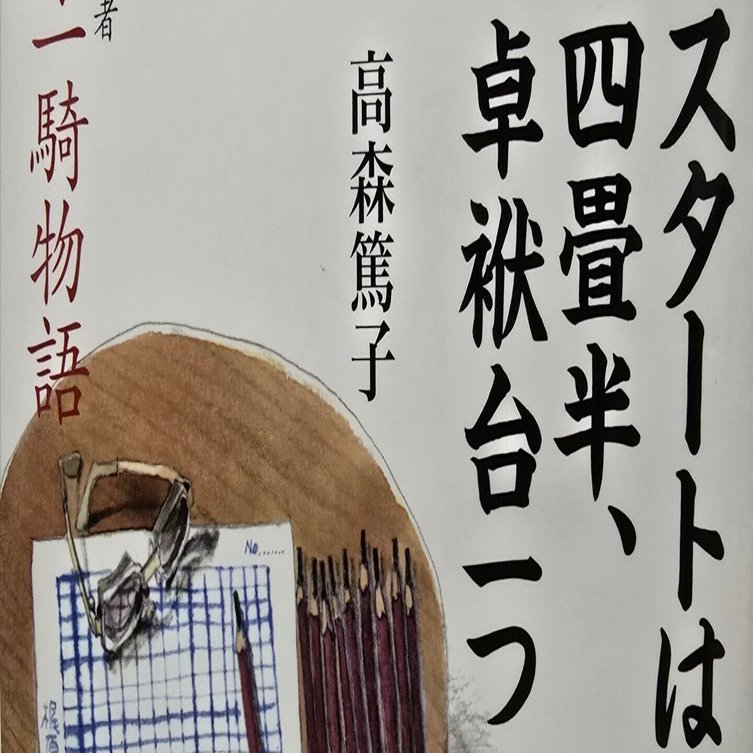 スタートは
四畳半、
卓袱台一つ
高森篤子
者
一騎物語
No.......